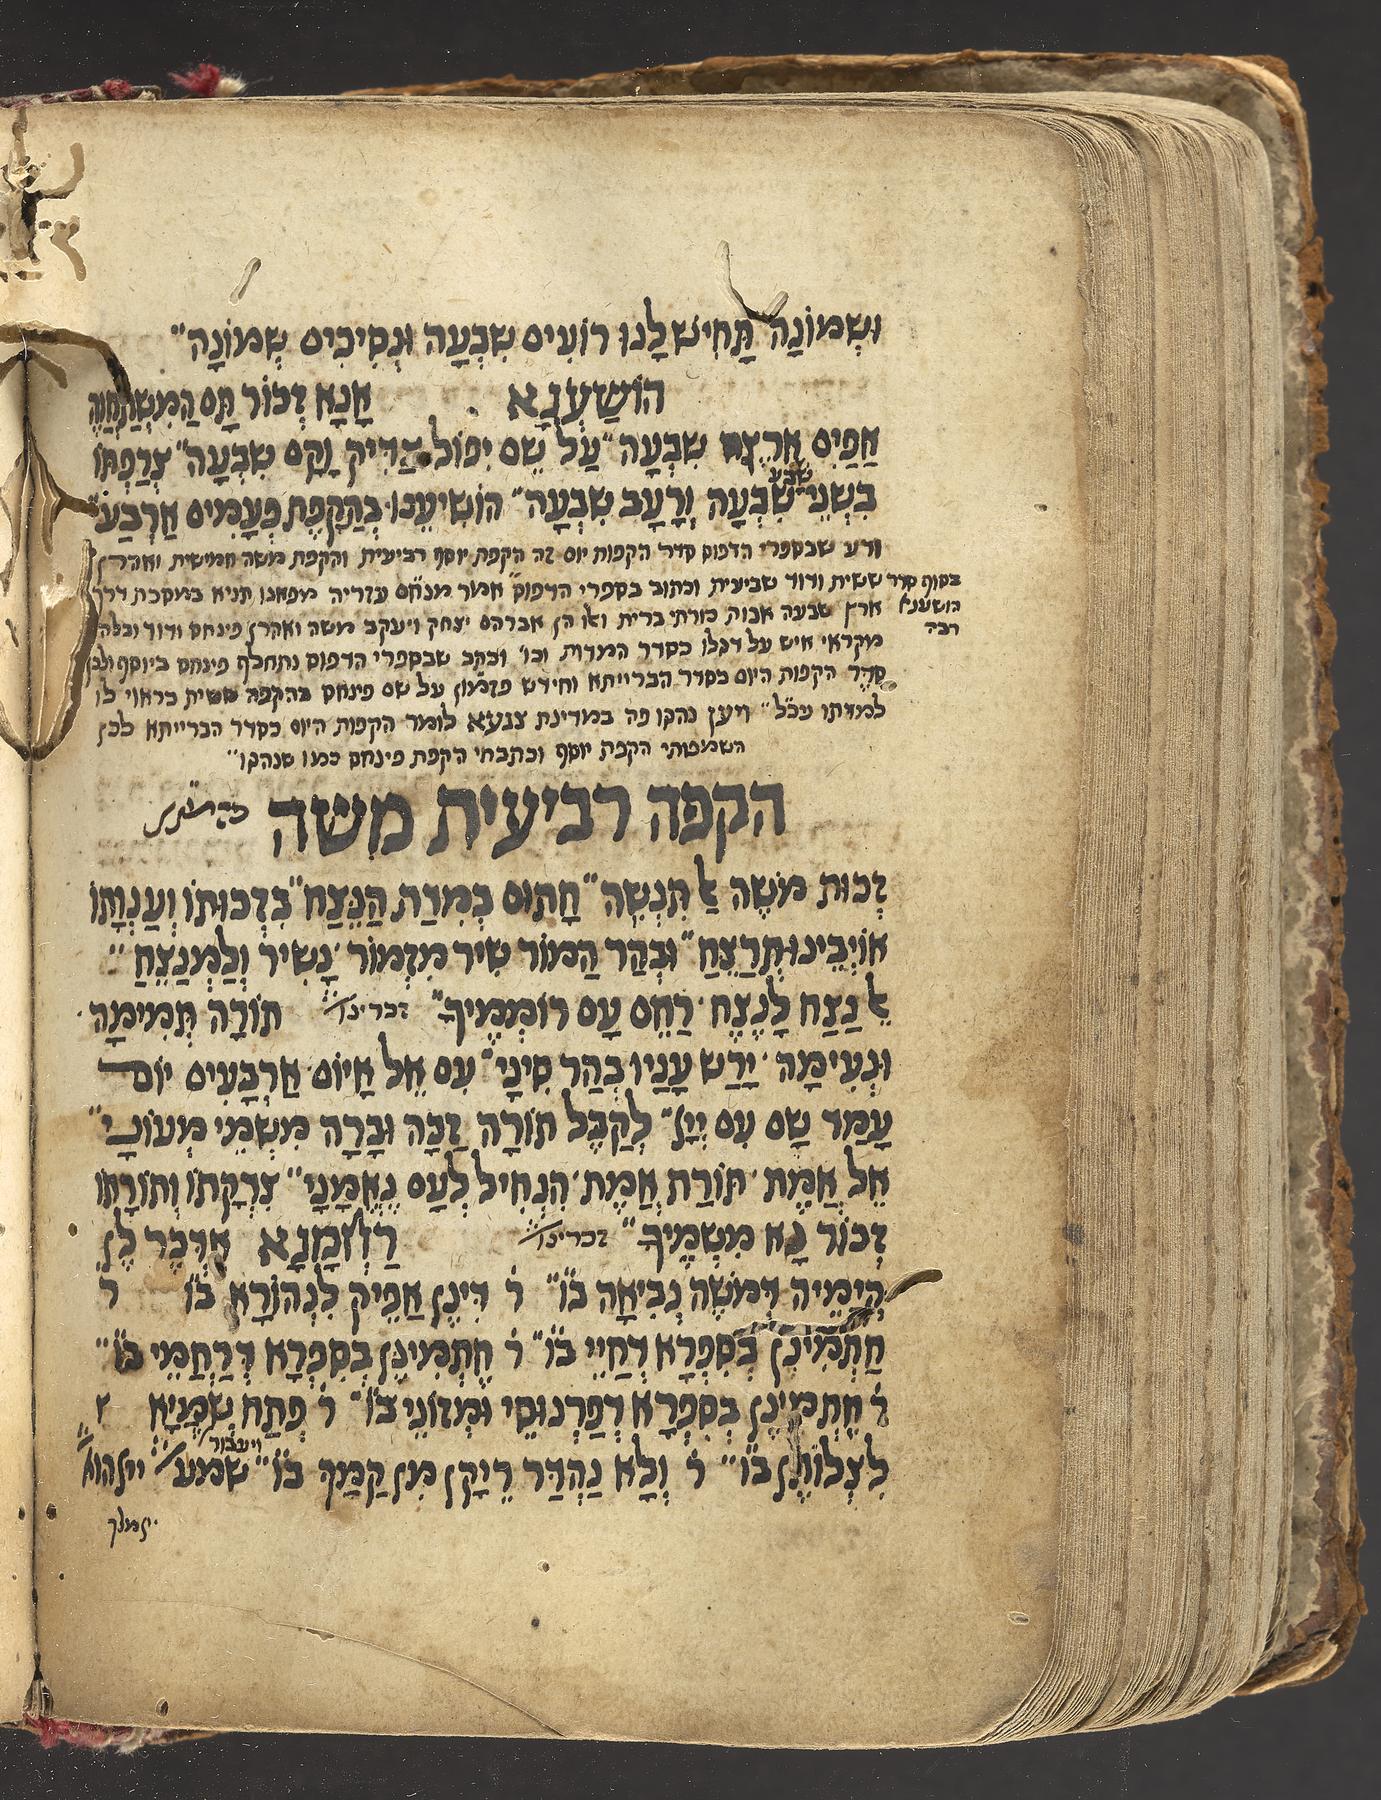 וּשְׁמוֹנָה תָּחִישׁ לָנוּ רוֹעִים שִׁבְעָה וּנְסִיכִים שְׁמוֹנָה״
הוֹשַׁעְנָא אָנָא זְכוֹר תָּם הַמִּשְׁתַּחֲוֶה
אַפַּיִם אַרְצָה שִׁבְעָה״ עַל שֵׁם יִפּוֹל צַדִּיק וָקָם שִׁבְעָה״ צְרַפְתּוֹ
בִּשְׁנֵי שֶׁבַע שִׁבְעָה וְרָעָב שִׁבְעָה״ הוֹשִׁיעֵנוּ בְּהַקָּפַת פְּעָמִים אַרְבַּע״
ודע שבספרי הדפוס סדר הקפות יום זה הקפת יוסף רביעית והקפת משה חמישית ואהרן
ששית ודוד שביעית וכתוב בספרי הדפוס אמר מנחם עזריה מפאנו תניא במסכת דרך
ארץ שבעה אבות כורתי ברית ואלו הן אברהם יצחק ויעקב משה ואהרן פינחס ודוד
בסוף סדר
הושענא
רבה
מקראי איש על דגלו כסדר המדות וכו׳ וכתב שבספרי הדפוס נתחלף פינחס ביוסף ולכן
סדר הקפות היום כסדר הברייתא וחידש פזמון על שם פינחס בהקפה ששית כראוי לו
למדתו עכ״ל״ ויען נהגו פה במדינת צנעא לומר הקפות היום כסדר הברייתא לכן
השמטתי הקפת יוסף וכתבתי הקפת פינחס כמו שנהגו״
הקפה רביעית מֹשה
זְכוּת מֹשֶׁה לֹא תִנָּשֶׁה״ חָתוּם בְּמִדַּת הַנֵּצַח״ בִּזְכוּתוֹ וְעַנְוָתוֹ
אוֹיְבֵינוּ תְּרַצֵּחַ״ וּבְהַר הַמּוֹר שִׁיר מִזְמוֹר נָשִׁיר וְלַמְנַצֵּחַ״
אֵל נַצַּח לָנֶצַח רַחֵם עַם רוֹמְמֶיךָ״ זכר ינו׳ תּוֹרָה תְּמִימָה
וּנְעִימָה יָרַשׁ עָנָיו בְּהַר סִינָי״ עִם אֵל אָיוֹם אַרְבָּעִים יוֹם
עָמַד שָׁם עִם יְיָ״ לְקַבֵּל תּוֹרָה זַכָּה וּבָרָה מִשְּׁמֵי מְעוֹנָי״
אֵל אֱמֶת תּוֹרַת אֱמֶת הִנְחִיל לְעַם נֶאֱמָנָי״ צִדְקָתוֹ וְתוֹרָתוֹ
זְכוֹר נָא מִשָּׁמֶיךָ״ זכר ינו׳ רַחֲמָנָא אִדְכַּר לָן
קְיָמֵיהּ דְּמֹשֶׁה נְבִיאָה בּ״ו ר׳ דִּינָן אַפֵּיק לִנְהוֹרָא בּ״ו ר׳
חַתְמִינָן בְּסִפְרָא דְּחַיֵּי בּ״ו ר׳ חַתְמִינָן בְּסִפְרָא דְּרַחֲמֵי בּ״ו״
ר׳ חַתְמִינָן בְּסִפְרָא דְּפַרְנָסֵי וּמְזוֹנֵי בּ״ו ר׳ פְּתַח שְׁמַיָּא
לִצְלוֹתָן בּ״ו״ ר׳ וְלָא נַהְדַּר רֵיקָן מִן קַמָּךְ בּ״ו״ ויעבור שמע ייי הוא
ייי מלך